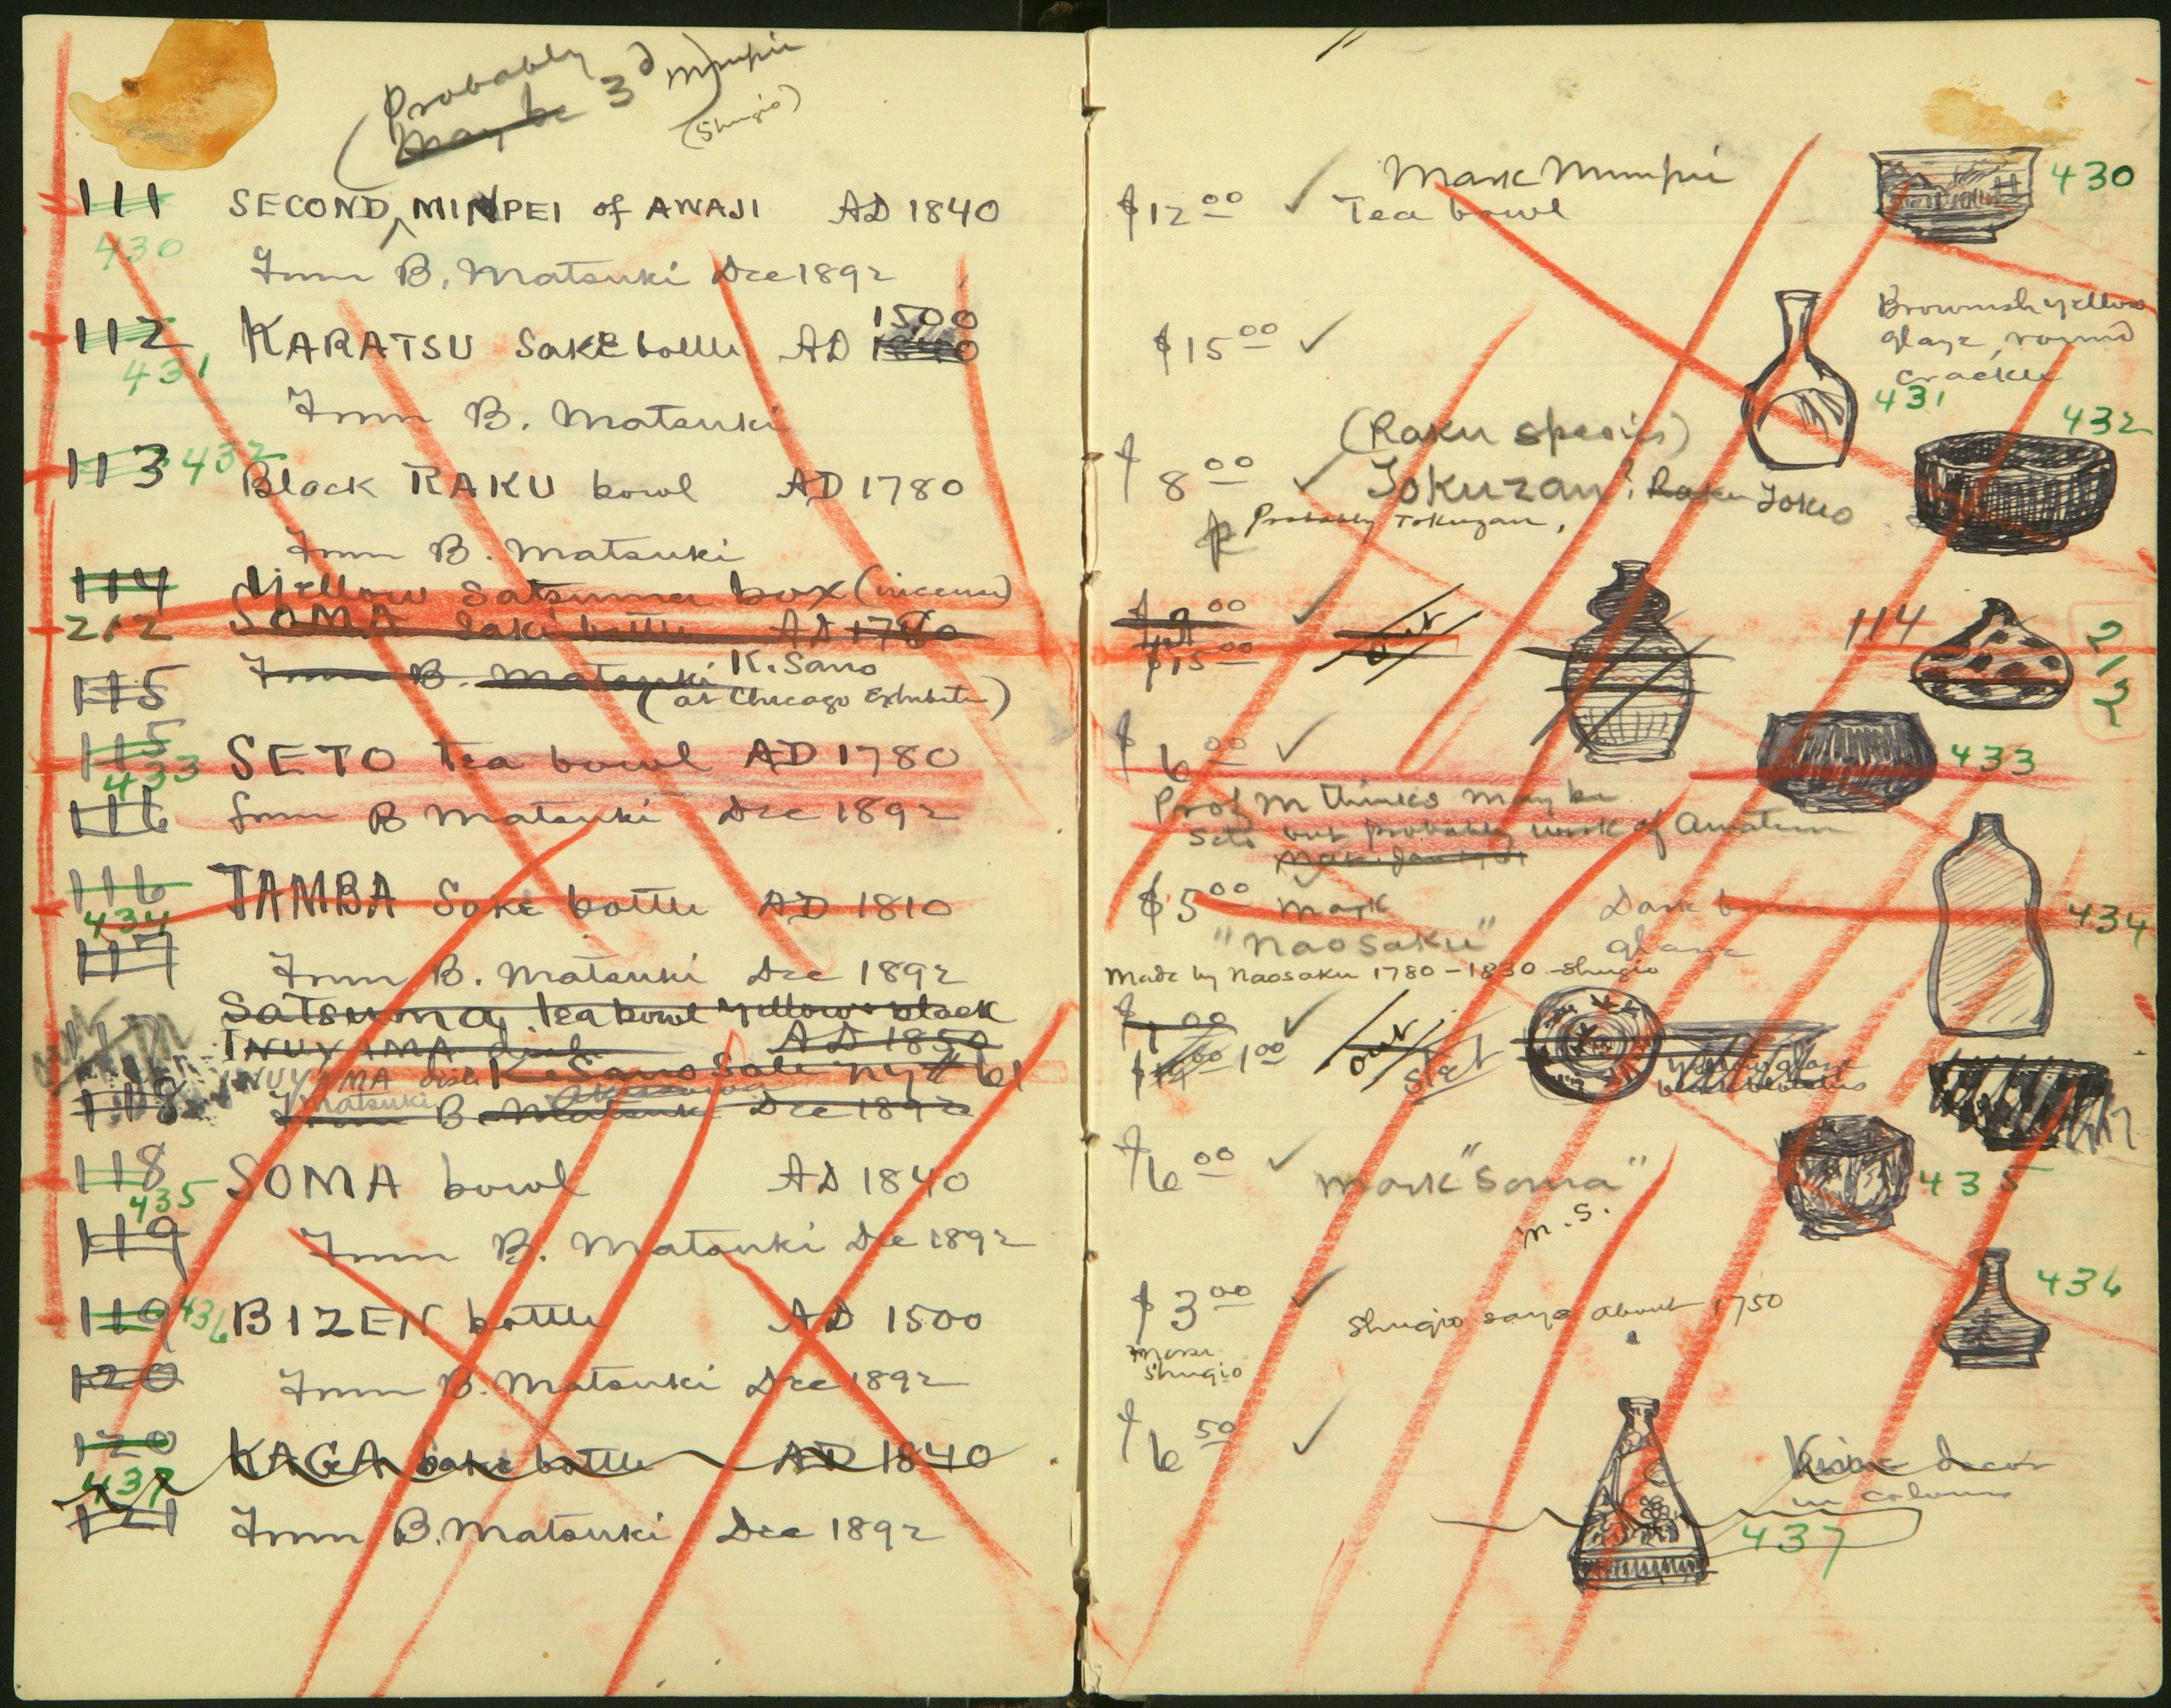 (Probably
May be 3d Minpei
(Shugio)
111 SECOND MINPEI of AWAJI AD 1840
430
From B. Matsuki Dec 1892
112 KARATSU Saké bottle AD 1500
431
From B. Matsuki
113 432
Black RAKU bowl AD 1780
From B. Matsuki
114 Yellow Satsuma box (incense)
212 SOMA Saké bottle AD 1780
From B. Matsuki K. Sano
115 (at Chicago Exhibition)
115 SETO Tea bowl AD 1780
433
116 from B Matsuki Dec 1892
116 TAMBA Saké bottle AD 1810
434
117
From B. Matsuki Dec 1892
Satsuma, tea bowl yellow & black
INUYAMA dish AD 1850
INUYAMA dish K. Sano Sale NY # 61
Matsuki
118 From B. Matsuki Dec 1892
118 SOMA bowl AD 1840
435
119 From B. Matsuki Dec 1892
119 436 BIZEN bottle AD 1500
120 From B. Matsuki Dec 1892
120 KAGA saké bottle AD 1840
437
121 From B. Matsuki Dec 1892
Mark Minpei
$12 00 Tea bowl 430
Brownish yellow
glaze, round
crackle
$15 00
431
432
(Raku species)
$8 00 Tokuzan? Raku Tokio
Probably Tokuzan.
00
$15 00 out
114
212
$6 00
433
Prof M thinks may be
Seto but probably work of Amateur
$5 00 Mark Dark brown
glaze
434
"Naosaku"
Made by Naosaku 1780-1830 - Shugio
$1 00
1 00 out
Yellow glaze
$6 00 Mark "Soma"
M.S.
435
$3 00 Shugio says about 1750
436
Shugio
$6 50
decor
in colours
437